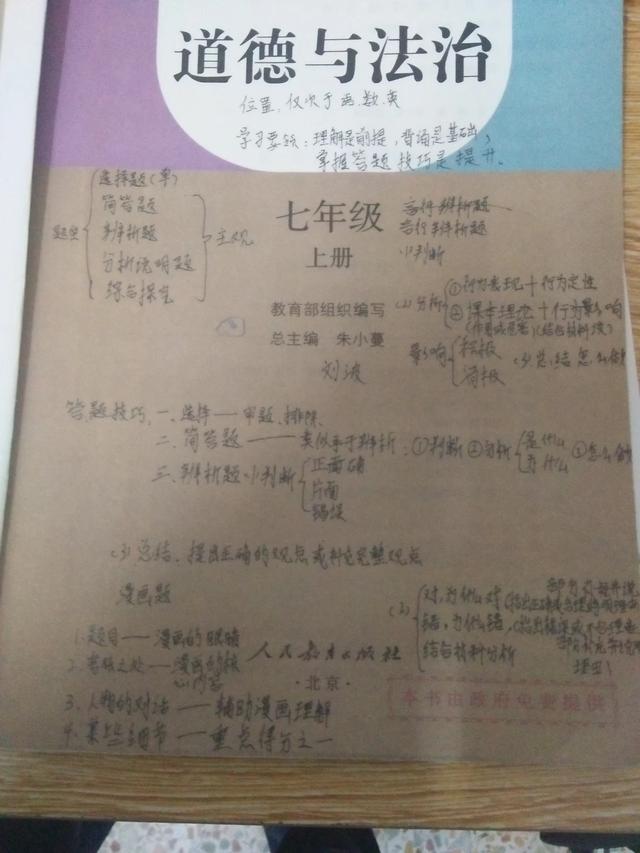 道德与法治
位置,仅次于语.数.英
学习要领:理解是前提,背诵是基础,
掌握答题技巧是提升。
题型
选择题(单)
简答题
辨析题
分析说明题
综合探究
主观
七年级
上册
言行辨析题
言行辨析题
(1)判断
教育部组织编写
总主编 朱小蔓
刘波
(2)分析
①行为表现+行为定性
②课本理论+行为影响
影响
积极
消极
(3)总结 怎么做
答题技巧,一、选择——审题、排除.
二、简答题——类似于辨析:①判断②分析
是什么
为什么
③怎么做
三、辨析题(1)判断
正面确
片面
错误
(3)总结、提出正确的观点或补充完整观点
漫画题
(2)
对,为什么对
错,为什么错
结合材料分析
理由
1.题目——漫画的眼睛
2.夸张之处——漫画的核
心内容
3.人物的对话——辅助漫画理解
4.某些细节——重点得分之一
人民教育出版社
·北京·
本书由政府免费提供